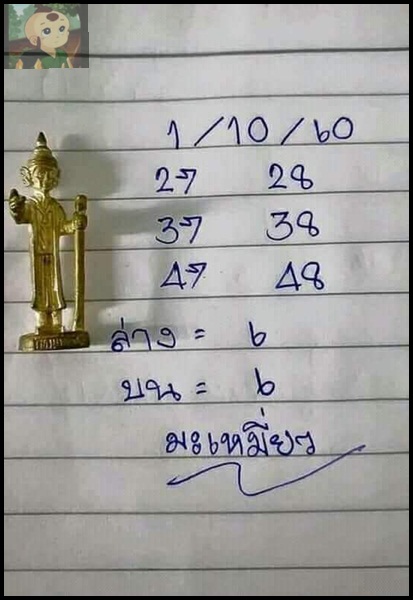 1/10/60
27 28
37 38
47 48
ล่าง = 6
บน = 6
มะเหมี่ยว